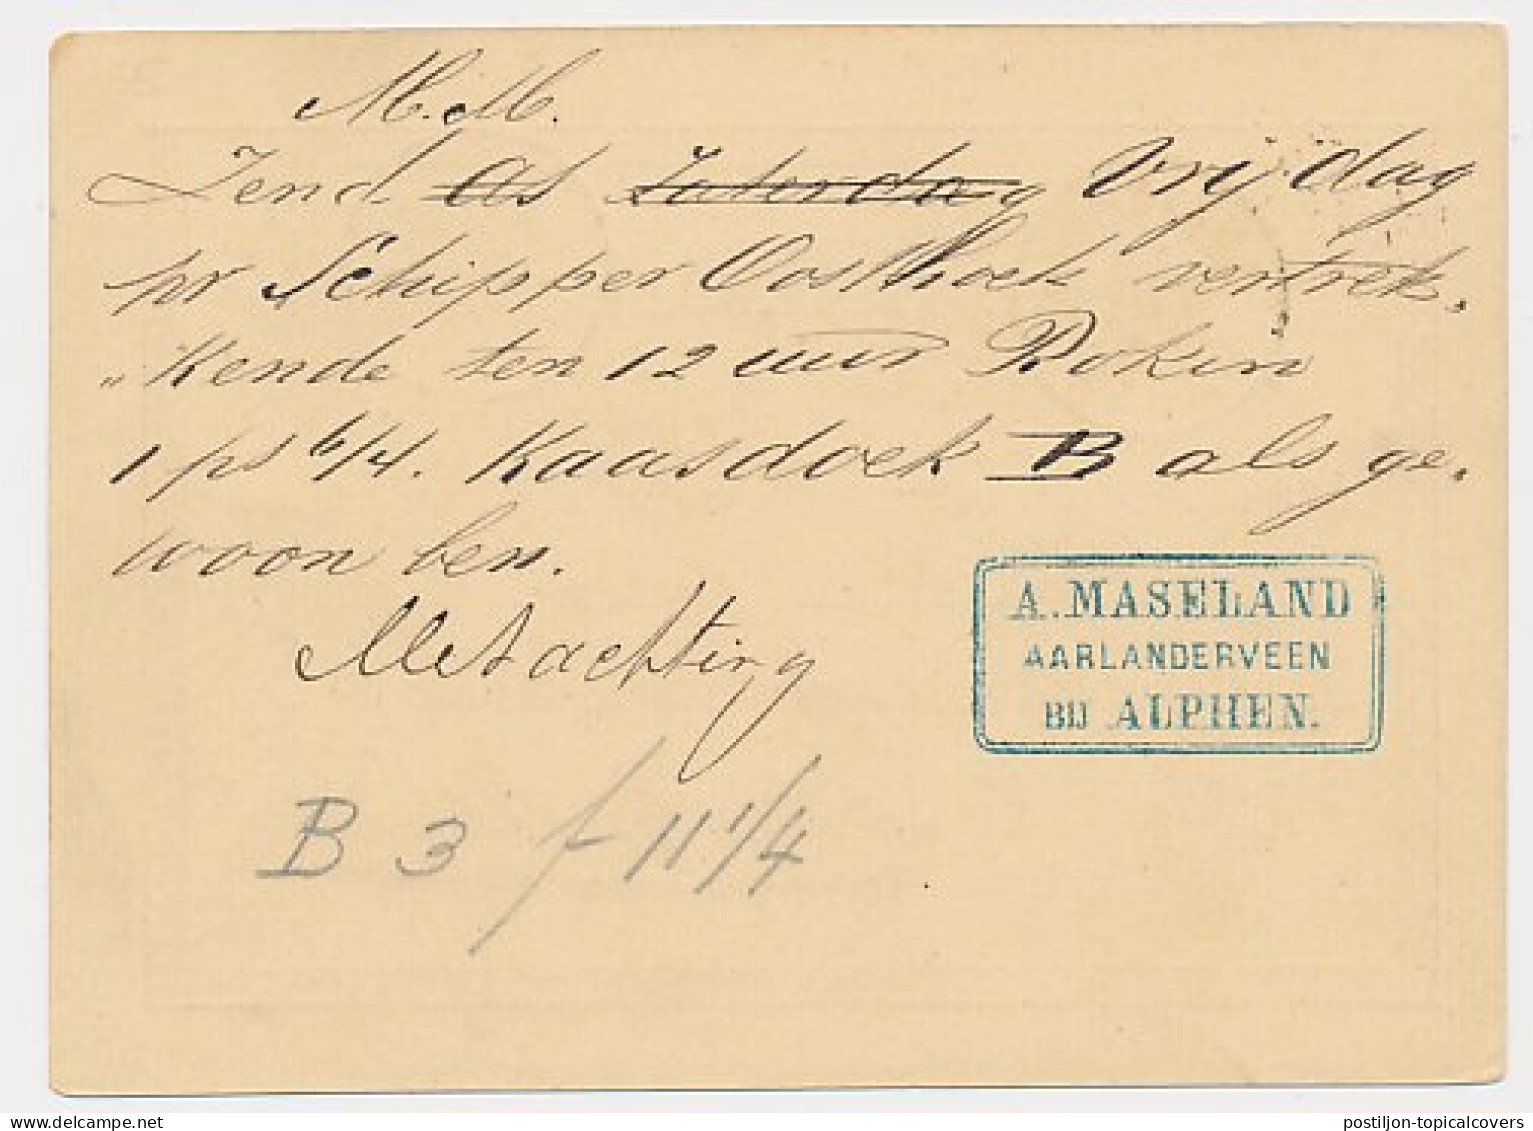 M. M.
Zend as Zaterdag Vrijdag
pr Schipper Oosthoek vertrek„
„kende ten 12 uur Rokin
1 ps 6/4. Kaasdoek B als ge„
woon ben.
Met achting
A. MASELAND
AARLANDERVEEN
BIJ ALPHEN.
B 3 f 11 1/4
postiljon-topicalcovers